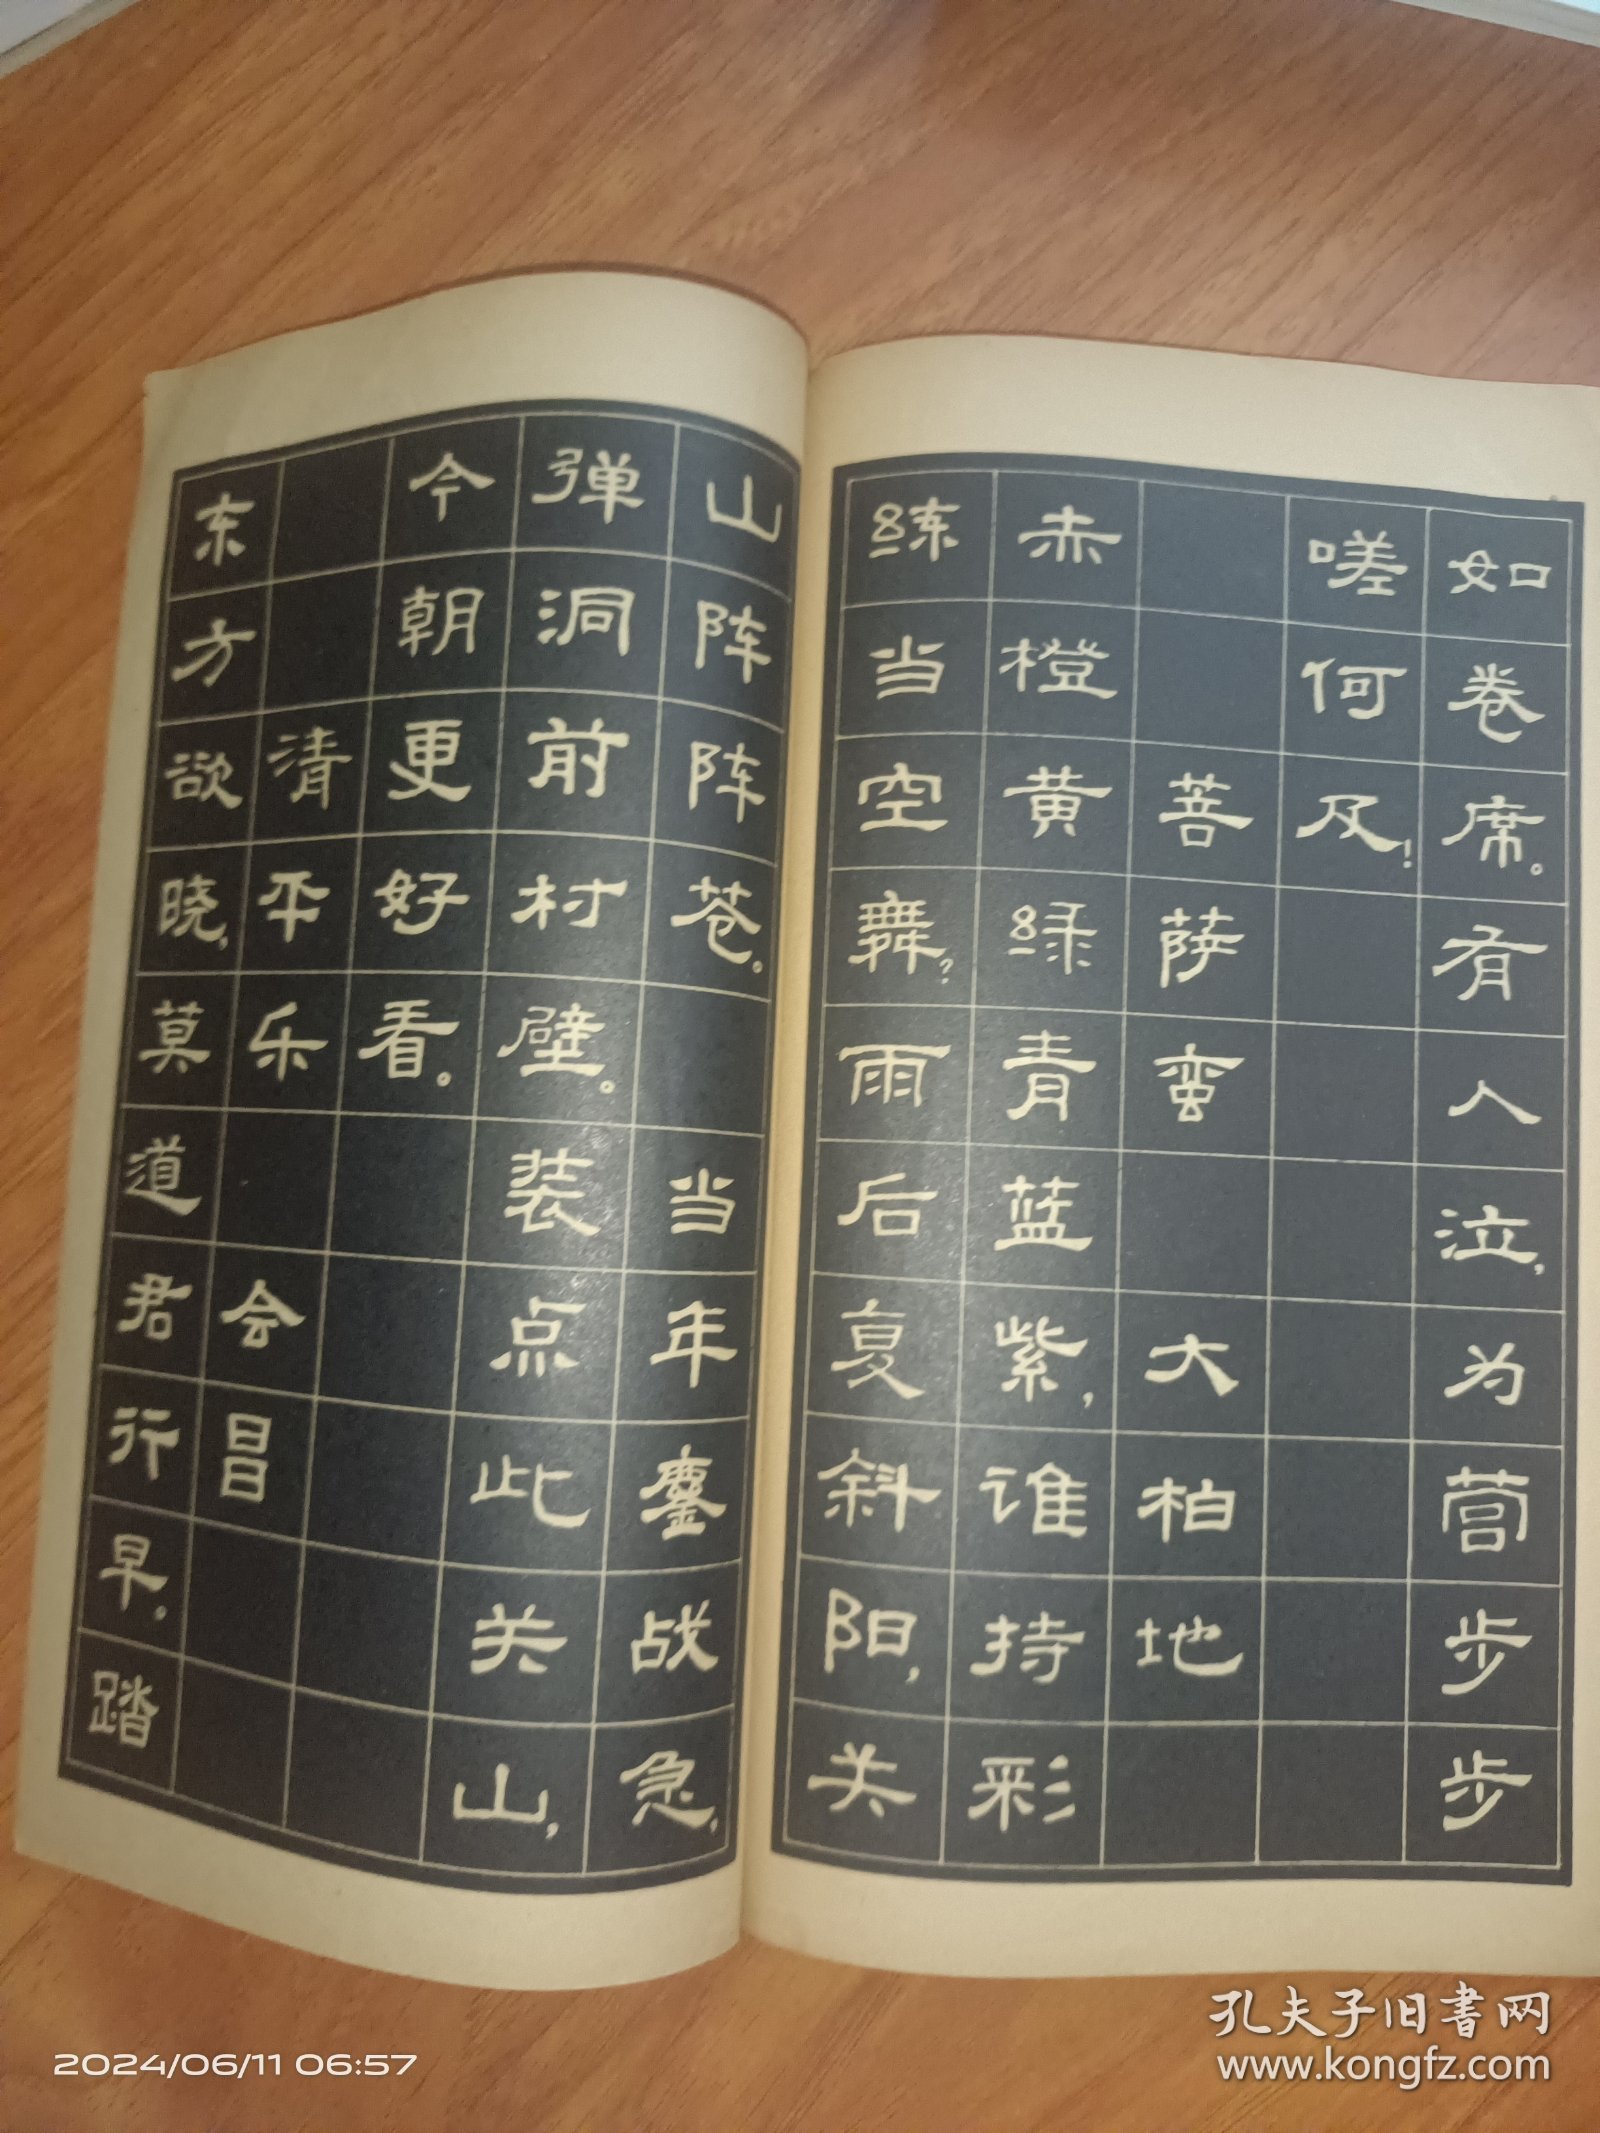 如卷席。有人泣，为营步步
嗟何及！
菩萨蛮 大柏地
赤橙黄绿青蓝紫，谁持彩
练当空舞？雨后复斜阳，关
山阵阵苍。 当年鏖战急，
弹洞前村壁。装点此关山，
今朝更好看。
清平乐 会昌
东方欲晓，莫道君行早。踏
2024/06/11 06:57
孔夫子旧书网
www.kongfz.com